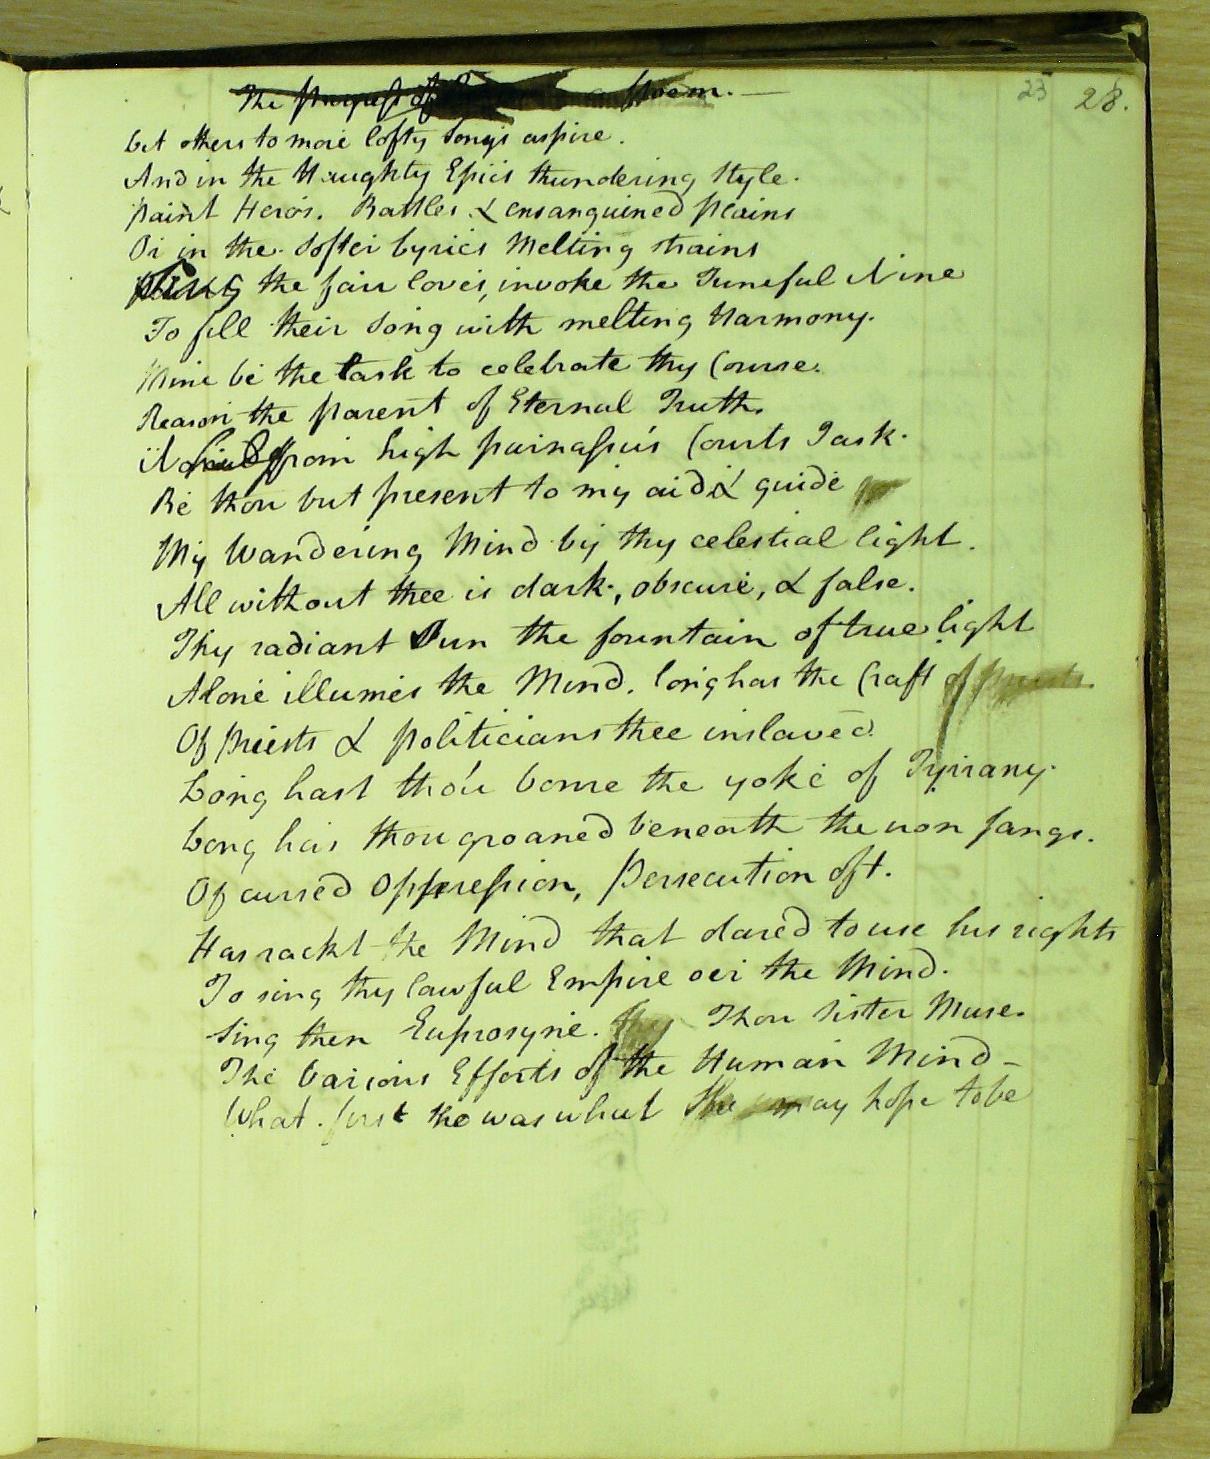 The Progress of Poem. —
23 28.
Let others to more lofty Songs aspire.
And in the Haughty Epics thundering Style.
Paint Hero's. Battles. & ensanguined Plains
Or in the Softer Lyrics Melting strains
the fair loves, invoke the Tuneful Nine
To fill their Song with melting Harmony.
Mine be the task to celebrate thy Course.
Reason the Parent of Eternal Truth.
No from high parnassus Courts I ask.
Be thou but present to my aid & guide
My Wandering Mind by thy celestial light.
All without thee is dark, obscure, & false.
Thy radiant Sun the fountain of true light
Alone illumes the Mind. Long has the Craft of Priests
Of Priests & Politicians thee inslaved
Long hast thou borne the yoke of Tyrrany.
Long has thou groaned beneath the iron fangs.
Of cursed Oppression, Persecution oft.
Has rackt the Mind that dared to use his rights
To sing thy lawful Empire oer the Mind.
Sing then Euprosyne. thy Thou Sister Muse.
The Various Efforts of the Human Mind –
What first she was what She may hope to be